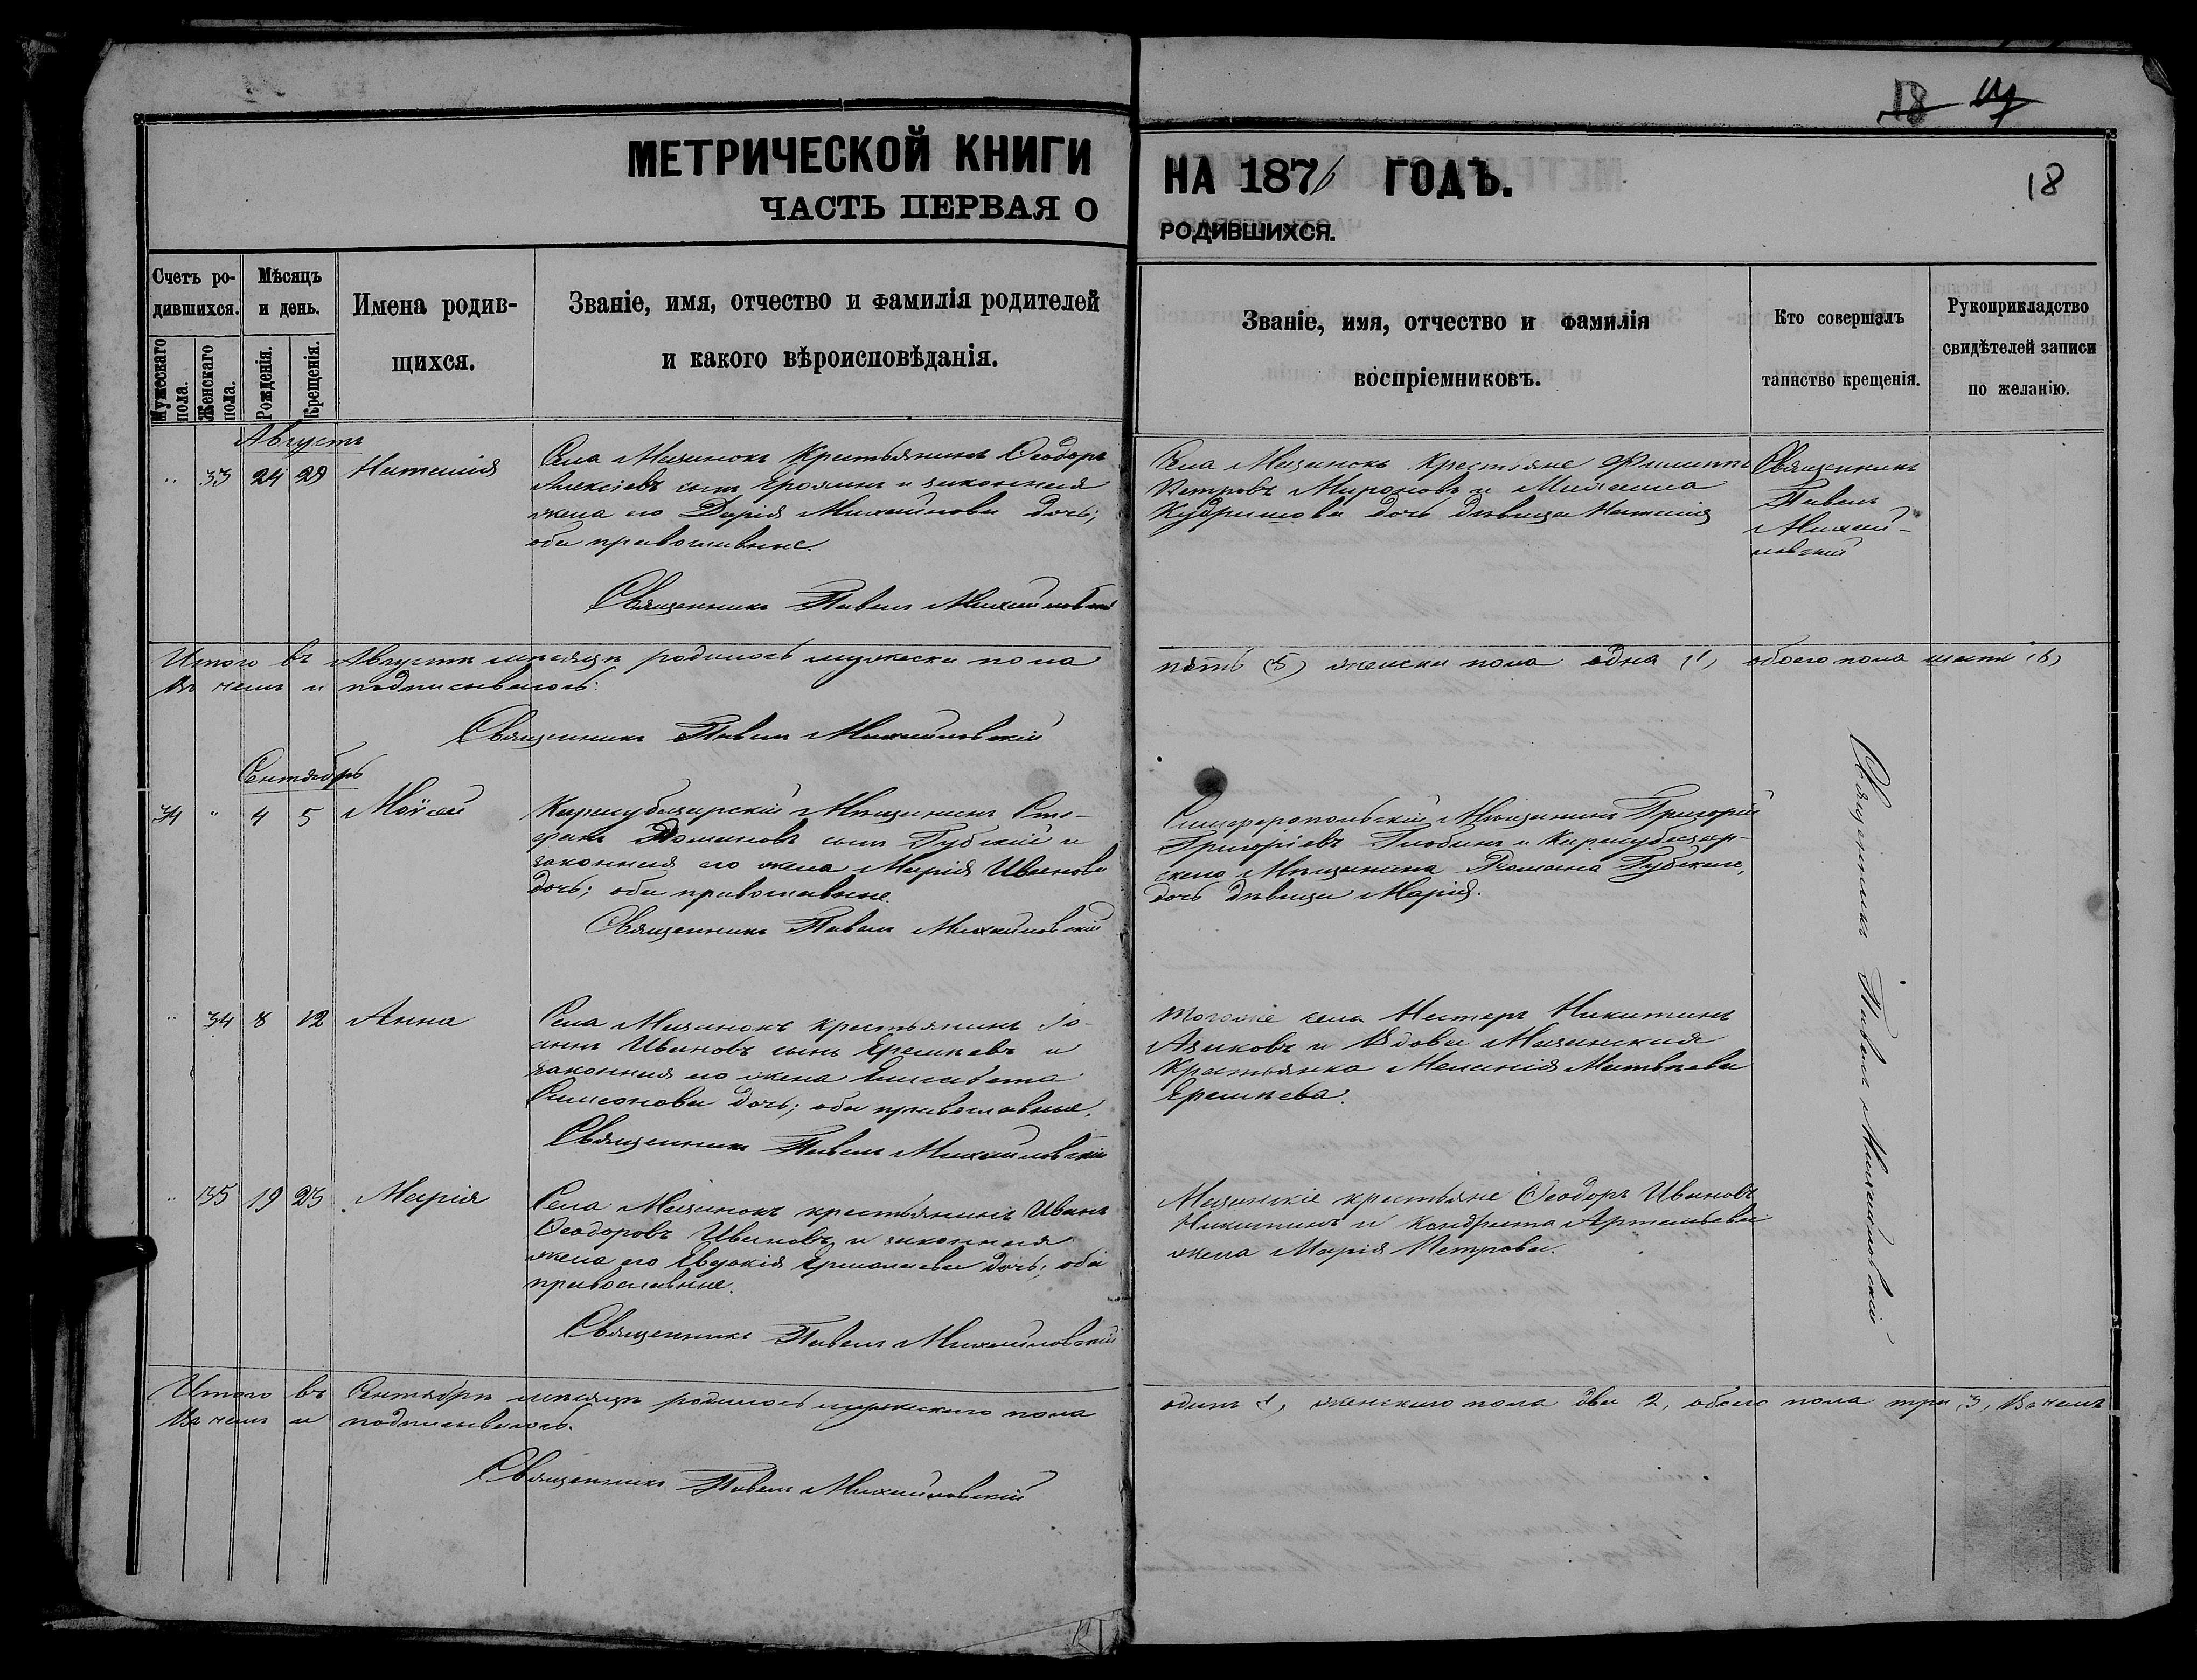 18
МЕТРИЧЕСКОЙ КНИГИ
НА 1876 ГОДЪ.
18
ЧАСТЬ ПЕРВАЯ О
РОДИВШИХСЯ.
Счетъ ро-
дившихся.
Мужескаго
пола.
Женскаго
пола.
Мѣсяцъ
и день.
Рожденія.
Крещенія.
Имена родив-
щихся.
Званіе, имя, отчество и фамилія родителей
и какого вѣроисповѣданія.
Званіе, имя, отчество и фамилія
воспріемниковъ.
Кто совершалъ
таинство крещенія.
Рукоприкладство
свидѣтелей записи
по желанію.
Августъ
" 33 24 29 Наталія
Села Мазанокъ Крестьянинъ Ѳеодоръ
Алексіевъ сынъ и законная
жена его Дарія Михайлова дочь;
оба православные.
Священникъ Павелъ Михайловскій
Села Мазанокъ Крестьяне Филиппъ
Петровъ Мироновъ и Михаила
Кудряшова дочь дѣвица Наталія
Священникъ
Павелъ
Михай-
ловскій
Итого въ Августѣ мѣсяцѣ родилось мужеска пола
пять (5) женска пола одна (1) обоего пола шесть (6)
Въ чемъ и подписываюсь:
Священникъ Павелъ Михайловскій
Сентябрь
34 " 4 5 Моѵсей
Карасубазарскій Мѣщанинъ Сте-
фанъ Романовъ сынъ Губскій и
законная его жена Марія Иванова
дочь; оба православные.
Священникъ Павелъ Михайловскій
Симферопольскій Мѣщанинъ Григорій
Григоріевъ Глобинъ и Карасубазар-
скаго Мѣщанина Романа Губскаго,
дочь дѣвица Марія.
" 34 8 12 Анна
Села Мазанокъ крестьянинъ Іо-
аннъ Ивановъ сынъ Еремѣевъ и
законная его жена Елисавета
Симеонова дочь; оба православные.
Священникъ Павелъ Михайловскій
Тогоже села Нестеръ Никитинъ
Азиковъ и Вдова Мазанская
Крестьянка Меланія Матвѣева
Еремѣева.
" 35 19 23 Марія
Села Мазанокъ крестьянинъ Иванъ
Ѳеодоровъ Ивановъ и законная
жена его Евдокія Ермолаева дочь; оба
православные.
Священникъ Павелъ Михайловскій
Мазанскіе крестьяне Ѳеодоръ Ивановъ
Никитинъ и Кондрата Артемьева
жена Марія Петрова.
Священникъ Павелъ Михайловскій
Итого въ Сентябрѣ мѣсяцѣ родилось мужескаго пола
одинъ 1, женскаго пола два 2, обоего пола три, 3, Въ чемъ
Въ чемъ и подписываюсь.
Священникъ Павелъ Михайловскій